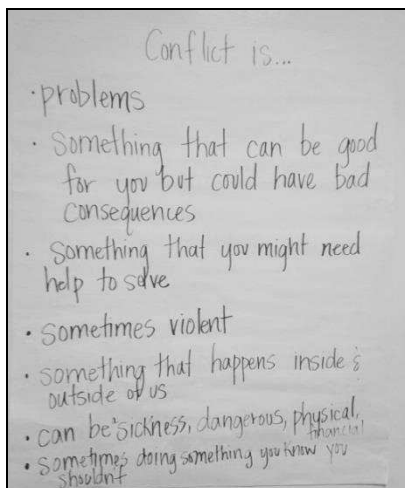 Conflict is...
• problems
• Something that can be good
for you but could have bad
consequences
• Something that you might need
help to solve
• sometimes violent
• something that happens inside &
outside of us
• can be sickness, dangerous, physical,
financial
• sometimes doing something you know you
shouldn't